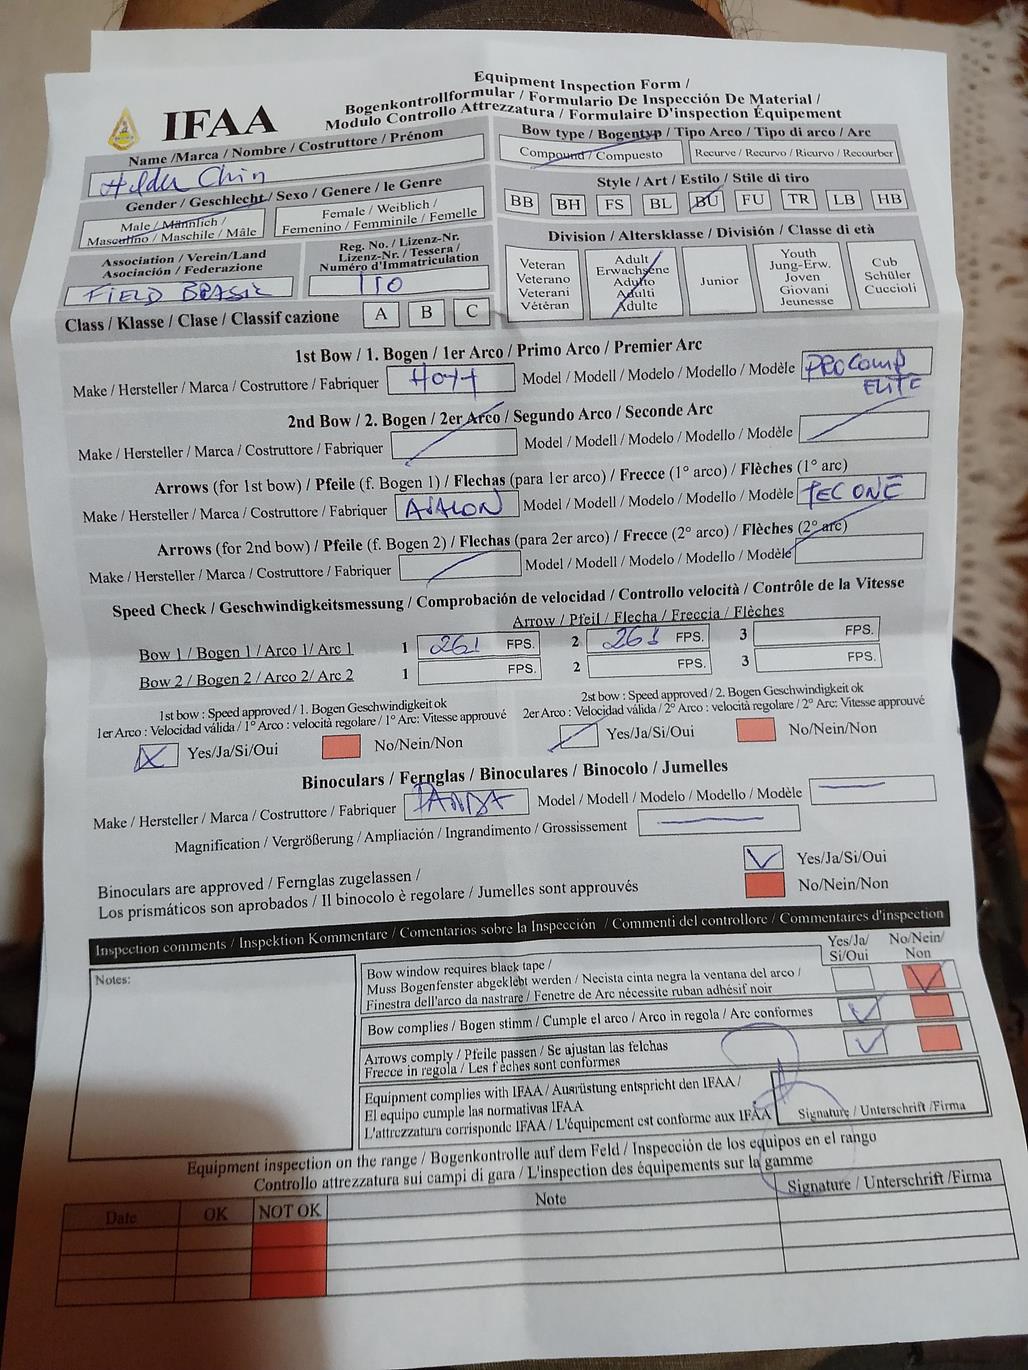 IFAA
Equipment Inspection Form /
Bogenkontrollformular / Formulario De Inspección De Material /
Modulo Controllo Attrezzatura / Formulaire D'inspection Équipement
Name /Marca / Nombre / Costruttore / Prénom
Hilda Chin
Bow type / Bogentyp / Tipo Arco / Tipo di arco / Arc
Compound / Compuesto
Recurve / Recurvo / Ricurvo / Recourber
Gender / Geschlecht / Sexo / Genere / le Genre
Male / Männlich /
Masculino / Maschile / Mâle
Female / Weiblich /
Femenino / Femminile / Femelle
Style / Art / Estilo / Stile di tiro
BB BH FS BL BU FU TR LB HB
Association / Verein/Land
Asociación / Federazione
FIELD BRASIL
Reg. No. / Lizenz-Nr.
Lizenz-Nr. / Tessera /
Numéro d'Immatriculation
110
Division / Altersklasse / División / Classe di età
Veteran
Veterano
Veterani
Vétéran
Adult
Erwachsene
Adulto
Adulti
Adulte
Junior
Youth
Jung-Erw.
Joven
Giovani
Jeunesse
Cub
Schüler
Cuccioli
Class / Klasse / Clase / Classif cazione A B C
1st Bow / 1. Bogen / 1er Arco / Primo Arco / Premier Arc
Make / Hersteller / Marca / Costruttore / Fabriquer HOYT Model / Modell / Modelo / Modello / Modèle PROCOMP
ELITE
2nd Bow / 2. Bogen / 2er Arco / Segundo Arco / Seconde Arc
Make / Hersteller / Marca / Costruttore / Fabriquer Model / Modell / Modelo / Modello / Modèle
Arrows (for 1st bow) / Pfeile (f. Bogen 1) / Flechas (para 1er arco) / Frecce (1° arco) / Flèches (1° arc)
Make / Hersteller / Marca / Costruttore / Fabriquer AVALON Model / Modell / Modelo / Modello / Modèle TEC ONE
Arrows (for 2nd bow) / Pfeile (f. Bogen 2) / Flechas (para 2er arco) / Frecce (2° arco) / Flèches (2° arc)
Make / Hersteller / Marca / Costruttore / Fabriquer Model / Modell / Modelo / Modello / Modèle
Speed Check / Geschwindigkeitsmessung / Comprobación de velocidad / Controllo velocità / Contrôle de la Vitesse
Arrow / Pfeil / Flecha / Freccia / Flèches
Bow 1 / Bogen 1 / Arco 1/ Arc 1 1 261 FPS. 2 261 FPS. 3 FPS.
Bow 2 / Bogen 2 / Arco 2/ Arc 2 1 FPS. 2 FPS. 3 FPS.
1st bow : Speed approved / 1. Bogen Geschwindigkeit ok
1er Arco : Velocidad válida / 1° Arco : velocità regolare / 1° Arc: Vitesse approuvé
Yes/Ja/Si/Oui No/Nein/Non
2st bow : Speed approved / 2. Bogen Geschwindigkeit ok
2er Arco : Velocidad válida / 2° Arco : velocità regolare / 2° Arc: Vitesse approuvé
Yes/Ja/Si/Oui No/Nein/Non
Binoculars / Fernglas / Binoculares / Binocolo / Jumelles
Make / Hersteller / Marca / Costruttore / Fabriquer PANDA Model / Modell / Modelo / Modello / Modèle
Magnification / Vergrößerung / Ampliación / Ingrandimento / Grossissement
Binoculars are approved / Fernglas zugelassen /
Los prismáticos son aprobados / Il binocolo è regolare / Jumelles sont approuvés
Yes/Ja/Si/Oui
No/Nein/Non
Inspection comments / Inspektion Kommentare / Comentarios sobre la Inspección / Commenti del controllore / Commentaires d'inspection
Notes:
Yes/Ja/
Si/Oui
No/Nein/
Non
Bow window requires black tape /
Muss Bogenfenster abgeklebt werden / Necista cinta negra la ventana del arco /
Finestra dell'arco da nastrare / Fenetre de Arc nécessite ruban adhésif noir
Bow complies / Bogen stimm / Cumple el arco / Arco in regola / Arc conformes
Arrows comply / Pfeile passen / Se ajustan las felchas
Frecce in regola / Les f èches sont conformes
Equipment complies with IFAA / Ausrüstung entspricht den IFAA /
El equipo cumple las normativas IFAA
L'attrezzatura corrisponde IFAA / L'équipement est conforme aux IFAA
Signature / Unterschrift /Firma
Equipment inspection on the range / Bogenkontrolle auf dem Feld / Inspección de los equipos en el rango
Controllo attrezzatura sui campi di gara / L'inspection des équipements sur la gamme
Date OK NOT OK Note Signature / Unterschrift /Firma